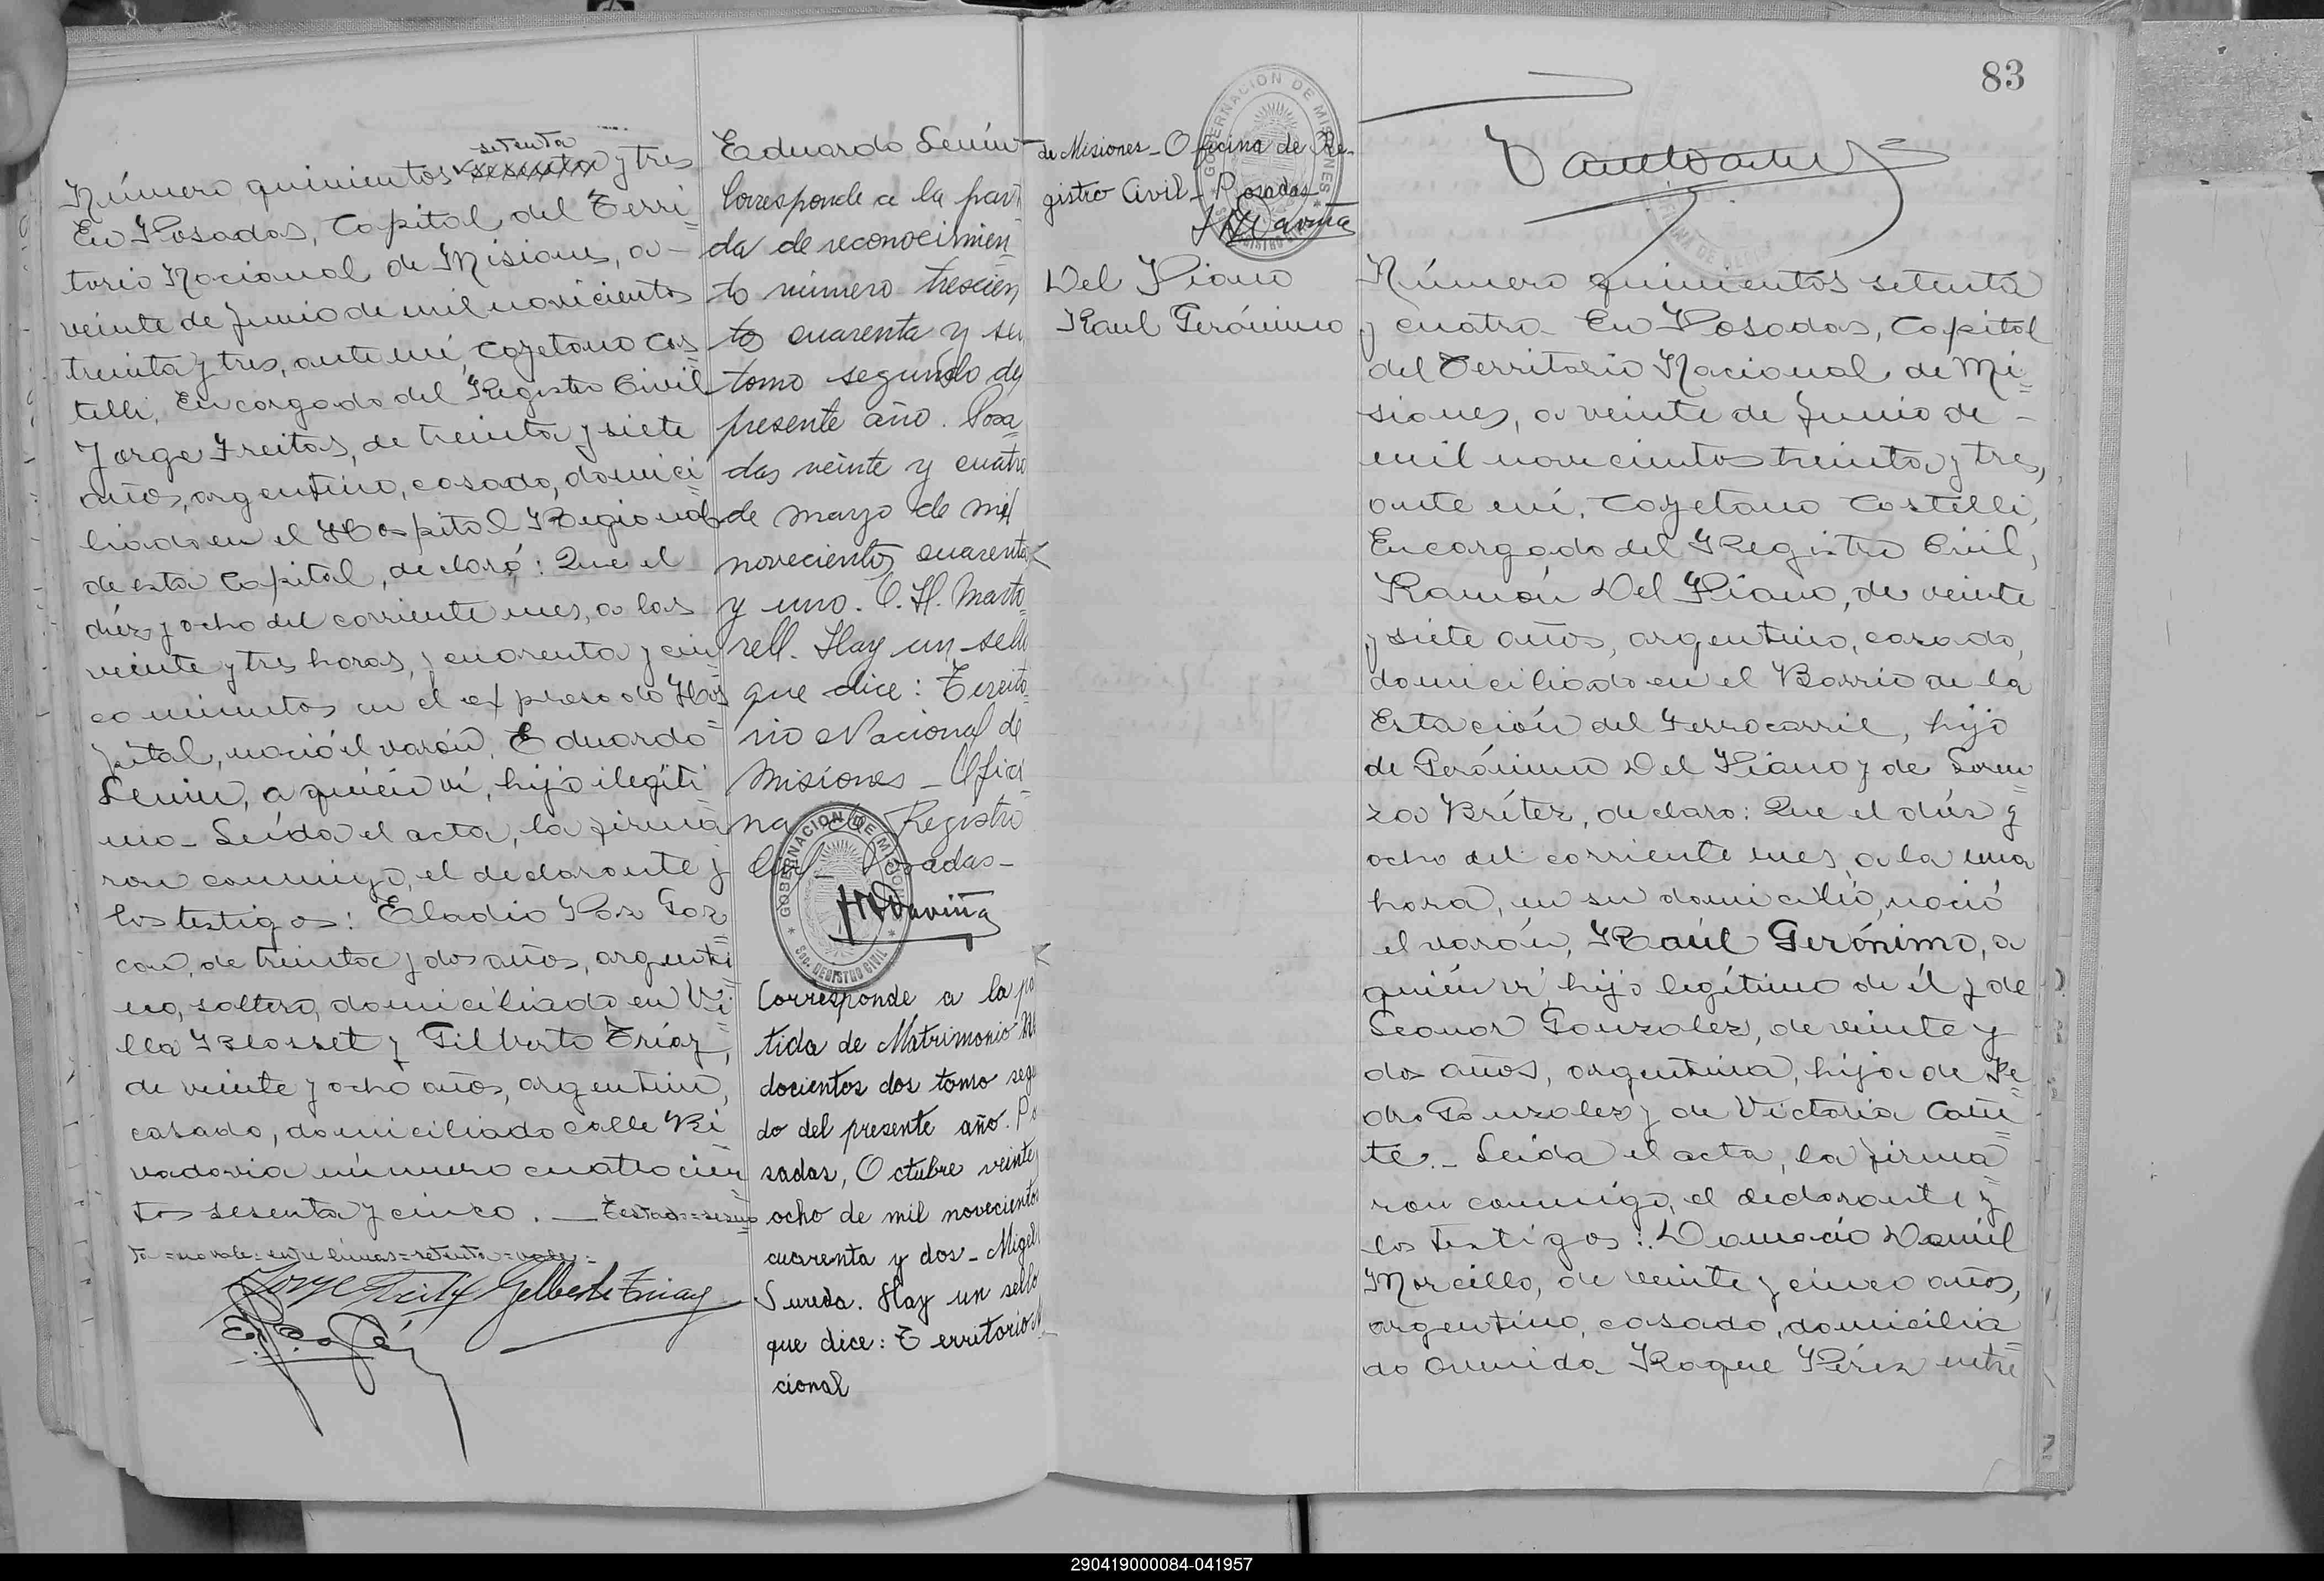 83
Número quinientos sesenta setenta y tres
En Posadas, Capital del Terri-
torio Nacional de Misiones, a-
veinte de Junio de mil novecientos
treinta y tres, ante mí, Cayetano Cas=
telli, Encargado del Registro Civil
Jorge Freitas, de treinta y siete
años, argentino, casado, domici=
liado en el Hospital Regional
de esta Capital, declaró: Que el
diez y ocho del corriente mes, a las
veinte y tres horas, y cuarenta y cin
co minutos en el expresado Hos=
pital, nació el varón, Eduardo
Lenin, a quién ví, hijo ilegíti=
mo- Leída el acta, la firma=
ron conmigo, el declarante y
los testigos: Eladio Paz
de treinta y dos años, argenti
no, soltero, domiciliado en Vi=
lla Blosset y Gilberto Triay,
de veinte y ocho años, argentino,
casado, domiciliado calle Ri=
vadavia número cuatrocien
tos sesenta y cinco.— Testado=sesen
ta=no vale=entre líneas=setenta=vale=
Eduardo Lenin-
Corresponde a la parti
da de reconocimien
to número trescien
to cuarenta y
tomo segundo del
presente año. Posa=
das veinte y cuatro
de marzo de mil
novecientos cuarenta
y uno. C. H. Marto=
rell. Hay un sello
que dice: Territo=
rio Nacional de
Misiones - Ofici=
na de Registro
Civil - Posadas-
GOBERNACION DE MISIONES
SEC. REGISTRO CIVIL
Corresponde a la par
tida de Matrimonio
docientos dos tomo segu
do del presente año. Po
sadas, Octubre veinte y
ocho de mil novecientos
cuarenta y dos- Migel
Sureda. Hay un sello
que dice: Territorio N
cional
de Misiones- Oficina de Re-
gistro Civil- Posadas-
GOBERNACION DE MISIONES
Del Piano
Raul Gerónimo
Número quinientos setenta
y cuatro- En Posadas, Capital
del Territorio Nacional de Mi=
siones, a veinte de Junio de -
mil novecientos treinta y tres,
ante mí, Cayetano Castelli,
Encargado del Registro Civil,
Ramón Del Piano, de veinte
y siete años, argentino, casado,
domiciliado en el Barrio de la
Estación del Ferrocarril, hijo
de Gerónimo Del Piano y de Loren=
za Brítez, declaro: Que el diez y
ocho del corriente mes, a la una
hora, en su domicilio, nació
el varón, Raúl Gerónimo, a
quién ví, hijo legítimo de él y de
Leonor Gonzalez, de veinte y
dos años, argentina, hija de Pe=
dro Gonzalez y de Victoria Cañe=
te.- Leída el acta, la firma=
ron conmigo, el declarante y
los testigos: Damacio Daniel
Morcillo, de veinte y cinco años,
argentino, casado, domicilia=
do avenida Roque Pérez entre
290419000084-041957